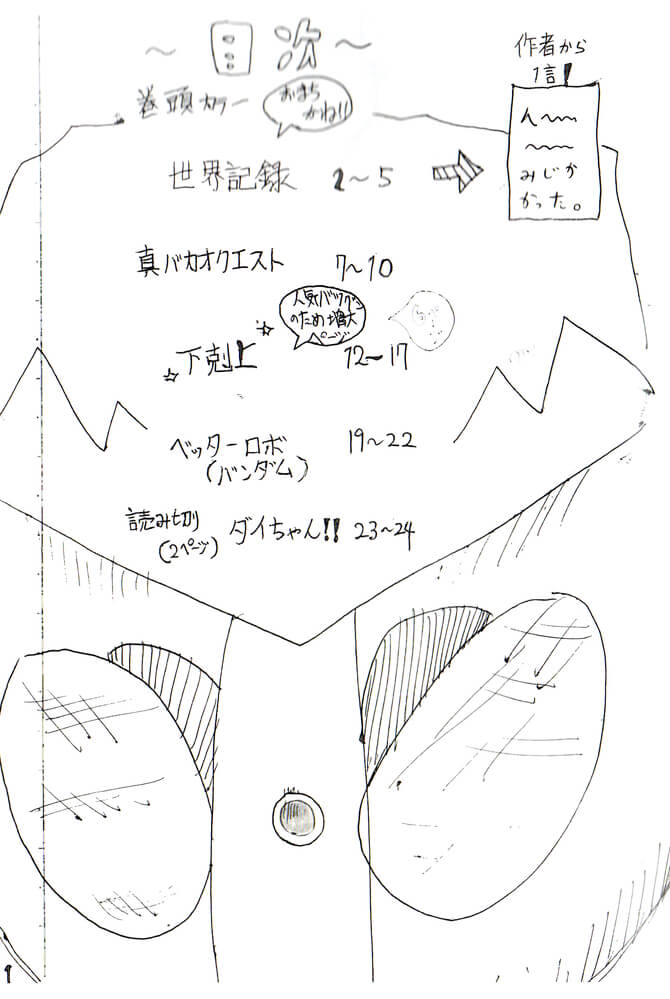 ～目次～
作者から
1言!
巻頭カラー
おまち
かね!!
ん〜〜
〜〜
みじか
かった。
世界記録 2～5
真バカオクエスト 7～10
人気バツグン
のため増大
ページ
☆下剋上☆ 12～17
ベッターロボ 19～22
(バンダム)
読み切り ダイちゃん!! 23～24
(2ページ)
1